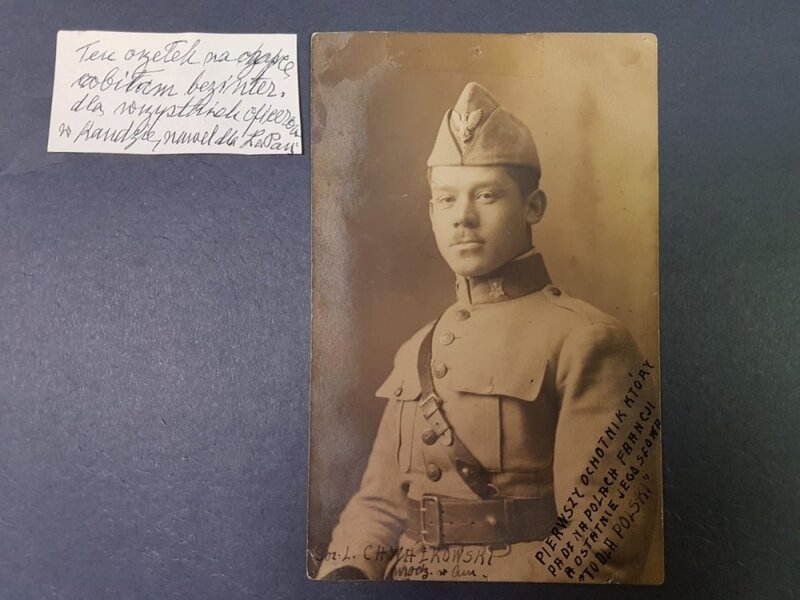 Ten orzełek na czapcę
robiłam bezinter.
dla wszystkich oficerów
w Kandzie, nawet dla
PIERWSZY OCHOTNIK KTÓRY
PADŁ NA POLACH FRANCJI
A OSTATNIE JEGO SŁOWA
"TO DLA POLSKI"
L. CHWAŁKOWSKI
urodz. w Am.